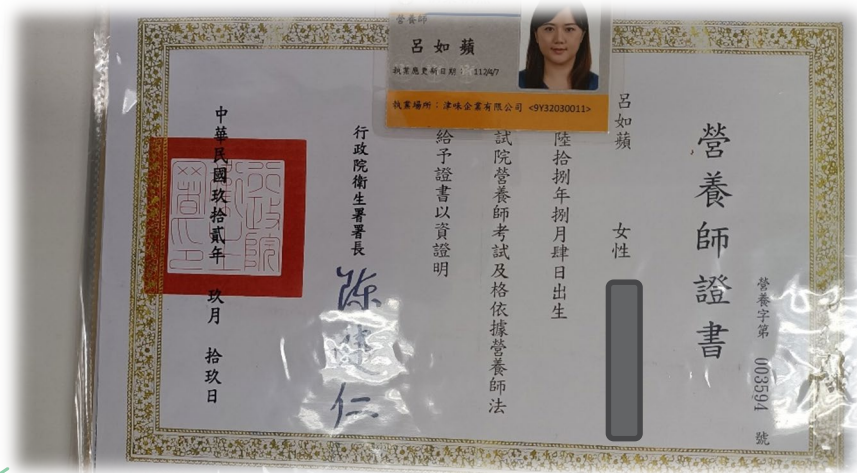 營養師
呂如蘋
執業應更新日期：112/4/7
執業場所：津味企業有限公司 <9Y32030011>
營養師證書
營養字第 003594 號
呂如蘋 女性
陸拾捌年捌月肆日出生
試院營養師考試及格依據營養師法
給予證書以資證明
行政院衛生署署長
陳建仁
中華民國玖拾貳年 玖月 拾玖日